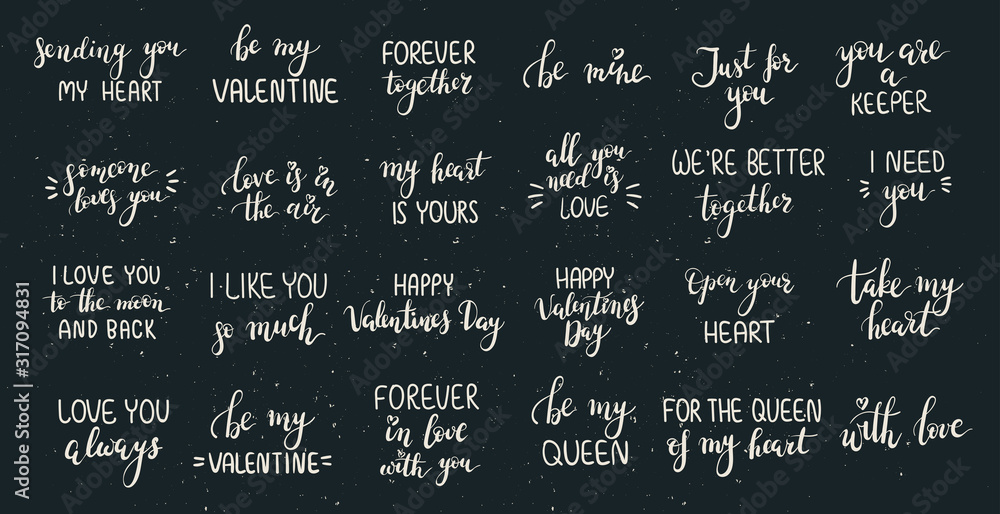 sending you
MY HEART
be my
VALENTINE
FOREVER
together
be mine
Just for
you
you are
a
KEEPER
someone
loves you
love is in
the air
my heart
IS YOURS
all you
need is
LOVE
WE'RE BETTER
together
I NEED
you
I LOVE YOU
to the moon
AND BACK
I LIKE YOU
so much
HAPPY
Valentines Day
HAPPY
Valentines
Day
Open your
HEART
take my
heart
LOVE YOU
always
be my
VALENTINE
FOREVER
in love
with you
be my
QUEEN
FOR THE QUEEN
of my heart
with love
Adobe Stock | #317094831